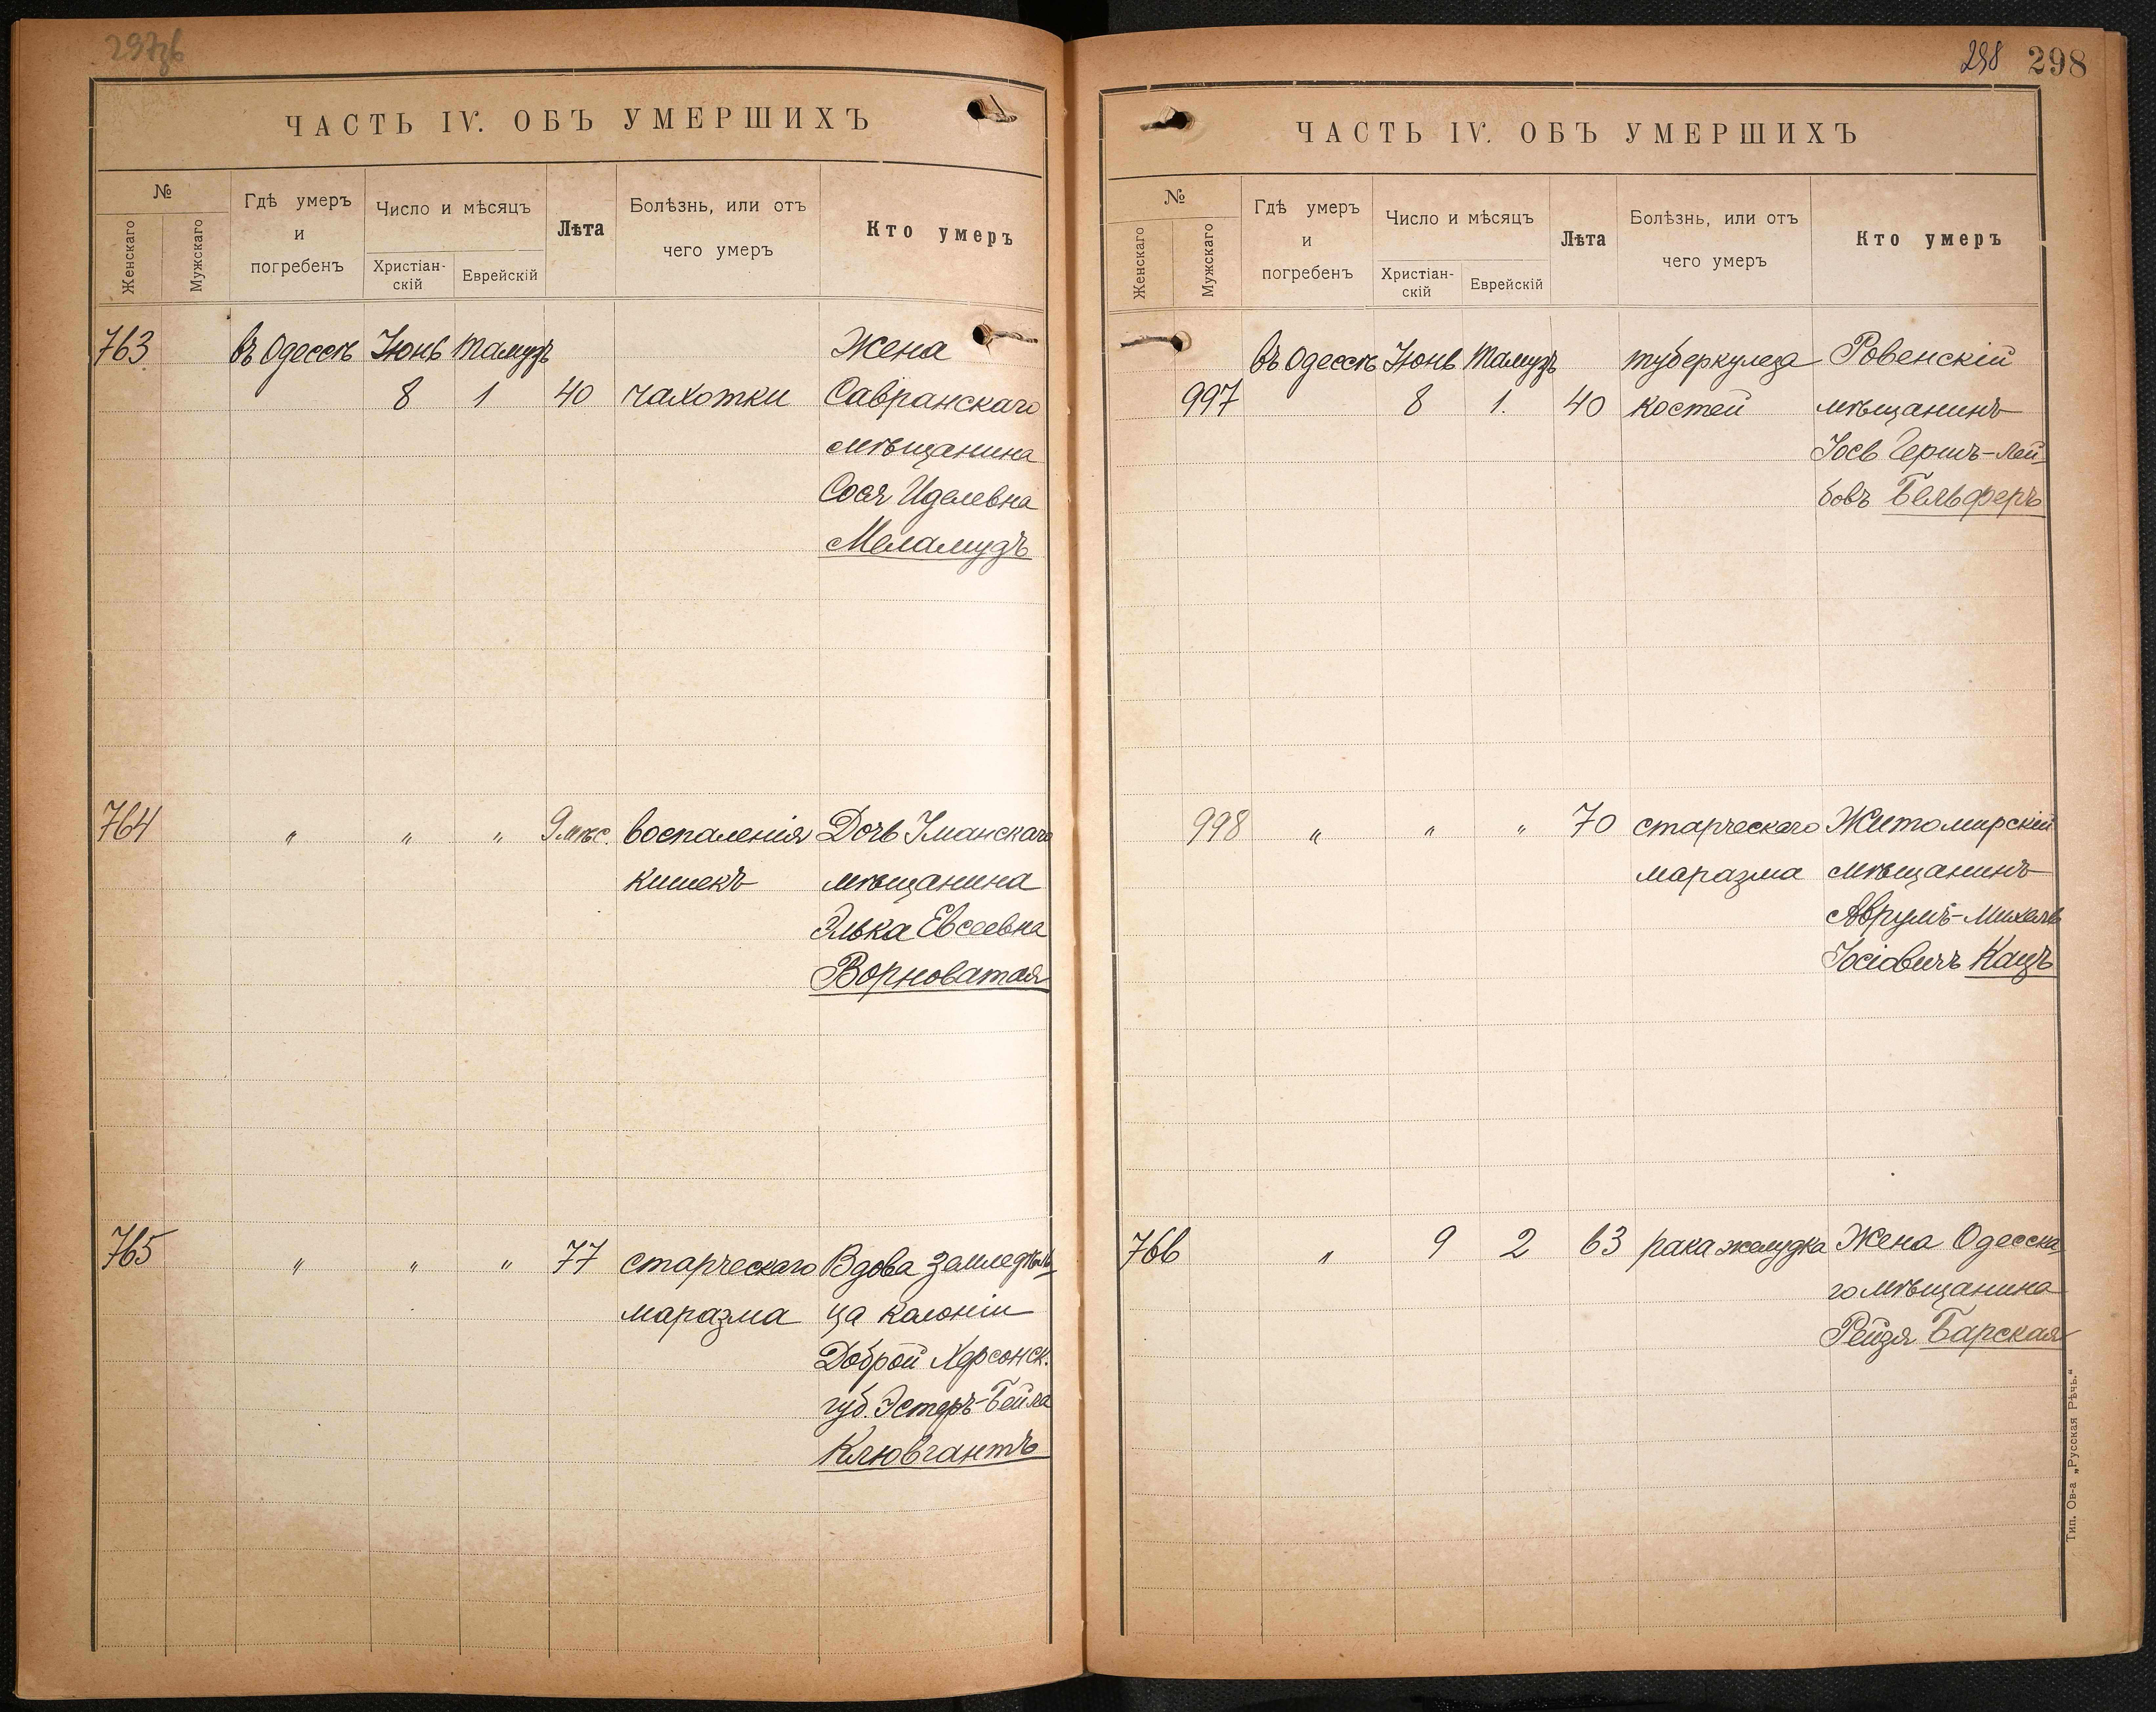 297об
ЧАСТЬ IV. ОБЪ УМЕРШИХЪ
№
Женскаго
Мужскаго
Гдѣ умеръ
и
погребенъ
Число и мѣсяцъ
Христіан-
скій
Еврейскій
Лѣта
Болѣзнь, или отъ
чего умеръ
Кто умеръ
763 въ Одессѣ Іюнь Тамузъ Жена
8 1 40 чахотки Савранскаго
мѣщанина
Сося Иделевна
Меламудъ
764 " " " 9 мѣс. воспаленія Дочь Уманскаго
кишекъ мѣщанина
Элька Евсеевна
Ворноватая
765 " " " 77 старческаго Вдова земледѣль-
маразма ца колоніи
Доброй Херсонск.
губ. Эстеръ-Бейла
Клювгантъ
298 298
ЧАСТЬ IV. ОБЪ УМЕРШИХЪ
№
Женскаго
Мужскаго
Гдѣ умеръ
и
погребенъ
Число и мѣсяцъ
Христіан-
скій
Еврейскій
Лѣта
Болѣзнь, или отъ
чего умеръ
Кто умеръ
въ Одессѣ Іюнь Тамузъ туберкулеза Ровенскій
997 8 1. 40 костей мѣщанинъ
Іось Гершъ-Лей-
бовъ Бельферъ
998 " " " 70 старческаго Житомирскій
маразма мѣщанинъ
Аврумъ-Михель
Іосіовичъ Кацъ
766 " 9 2 63 рака желудка Жена Одесска-
го мѣщанина
Рейзя Барская
Тип. Ов-а „Русская Рѣчь.“